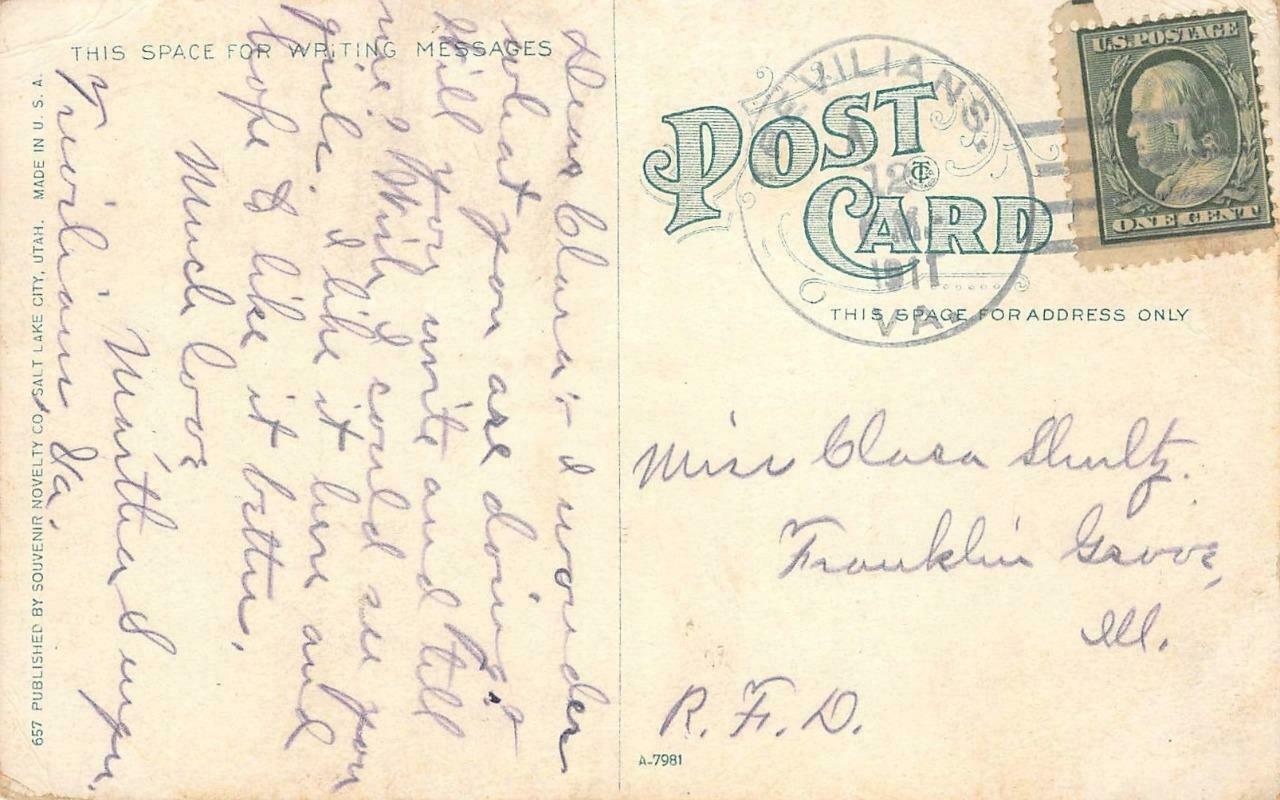 THIS SPACE FOR WRITING MESSAGES
Dear Clara:- I wonder
what you are doing?
Will you write and tell
me? Wish I could see you
girls. I like it here and
hope to like it better.
Much love
Trevilians Va.
657 PUBLISHED BY SOUVENIR NOVELTY CO. SALT LAKE CITY, UTAH. MADE IN U. S. A.
POST
CARD
TREVILIANS.
12
1911
VA.
U.S. POSTAGE
ONE CENT
THIS SPACE FOR ADDRESS ONLY
Miss Clara Shultz.
Franklin Grove,
Ill.
R. F. D.
A-7981